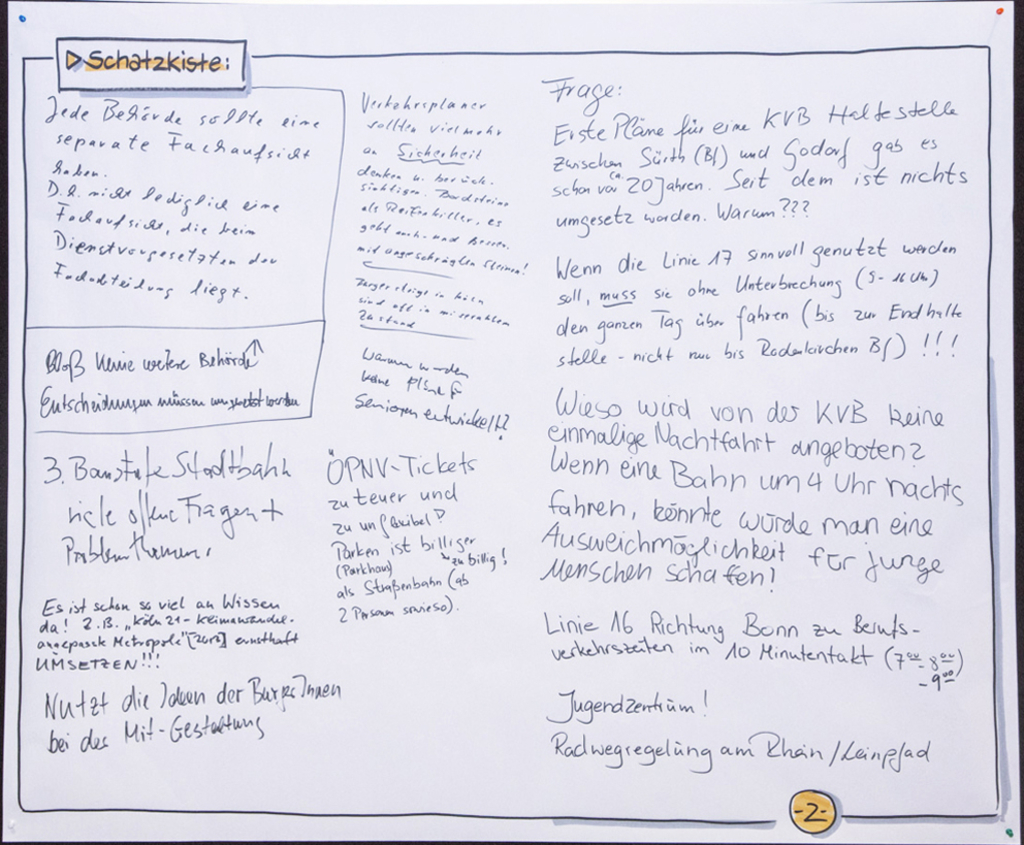 Schatzkiste:
Jede Behörde sollte eine
separate Fachaufsicht
haben.
D.h. nicht lediglich eine
Fachaufsicht, die beim
Dienstvorgesetzten der
Fachabteilung liegt.
Bloß keine weitere Behörde
Entscheidungen müssen umgesetzt werden
3. Baustufe Stadtbahn
viele offene Fragen +
Problemthemen.
Es ist schon so viel an Wissen
da! Z.B. „Köln 21 - Klimawandel-
angepasste Metropole" ernsthaft
UMSETZEN!!!
Nutzt die Ideen der BürgerInnen
bei der Mit-Gestaltung
Verkehrsplaner
sollten viel mehr
an Sicherheit
denken u. berück-
sichtigen. Bordsteine
als Reifenkiller, es
geht auch und besser
mit angeschrägten Steinen!
in Köln
sind oft in miserablem
Zustand
Warum wurden
keine Pläne f.
Senioren entwickelt?
ÖPNV-Tickets
zu teuer und
zu unflexibel?
Parken ist billiger
(Parkhaus) zu billig!
als Straßenbahn (ab
2 Personen sowieso).
Frage:
Erste Pläne für eine KVB Haltestelle
zwischen Sürth (Bf) und Godorf gab es
schon vor ca. 20 Jahren. Seit dem ist nichts
umgesetz worden. Warum???
Wenn die Linie 17 sinnvoll genutzt werden
soll, muss sie ohne Unterbrechung (9-16 Uhr)
den ganzen Tag über fahren (bis zur Endhalte
stelle - nicht nur bis Rodenkirchen Bf) !!!
Wieso wird von der KVB keine
einmalige Nachtfahrt angeboten?
Wenn eine Bahn um 4 Uhr nachts
fahren, könnte würde man eine
Ausweichmöglichkeit für junge
Menschen schafen!
Linie 16 Richtung Bonn zu Berufs-
verkehrszeiten im 10 Minutentakt (7⁰⁰-8⁰⁰)
-9⁰⁰
Jugendzentrum!
Radwegregelung am Rhein/Leinpfad
-2-